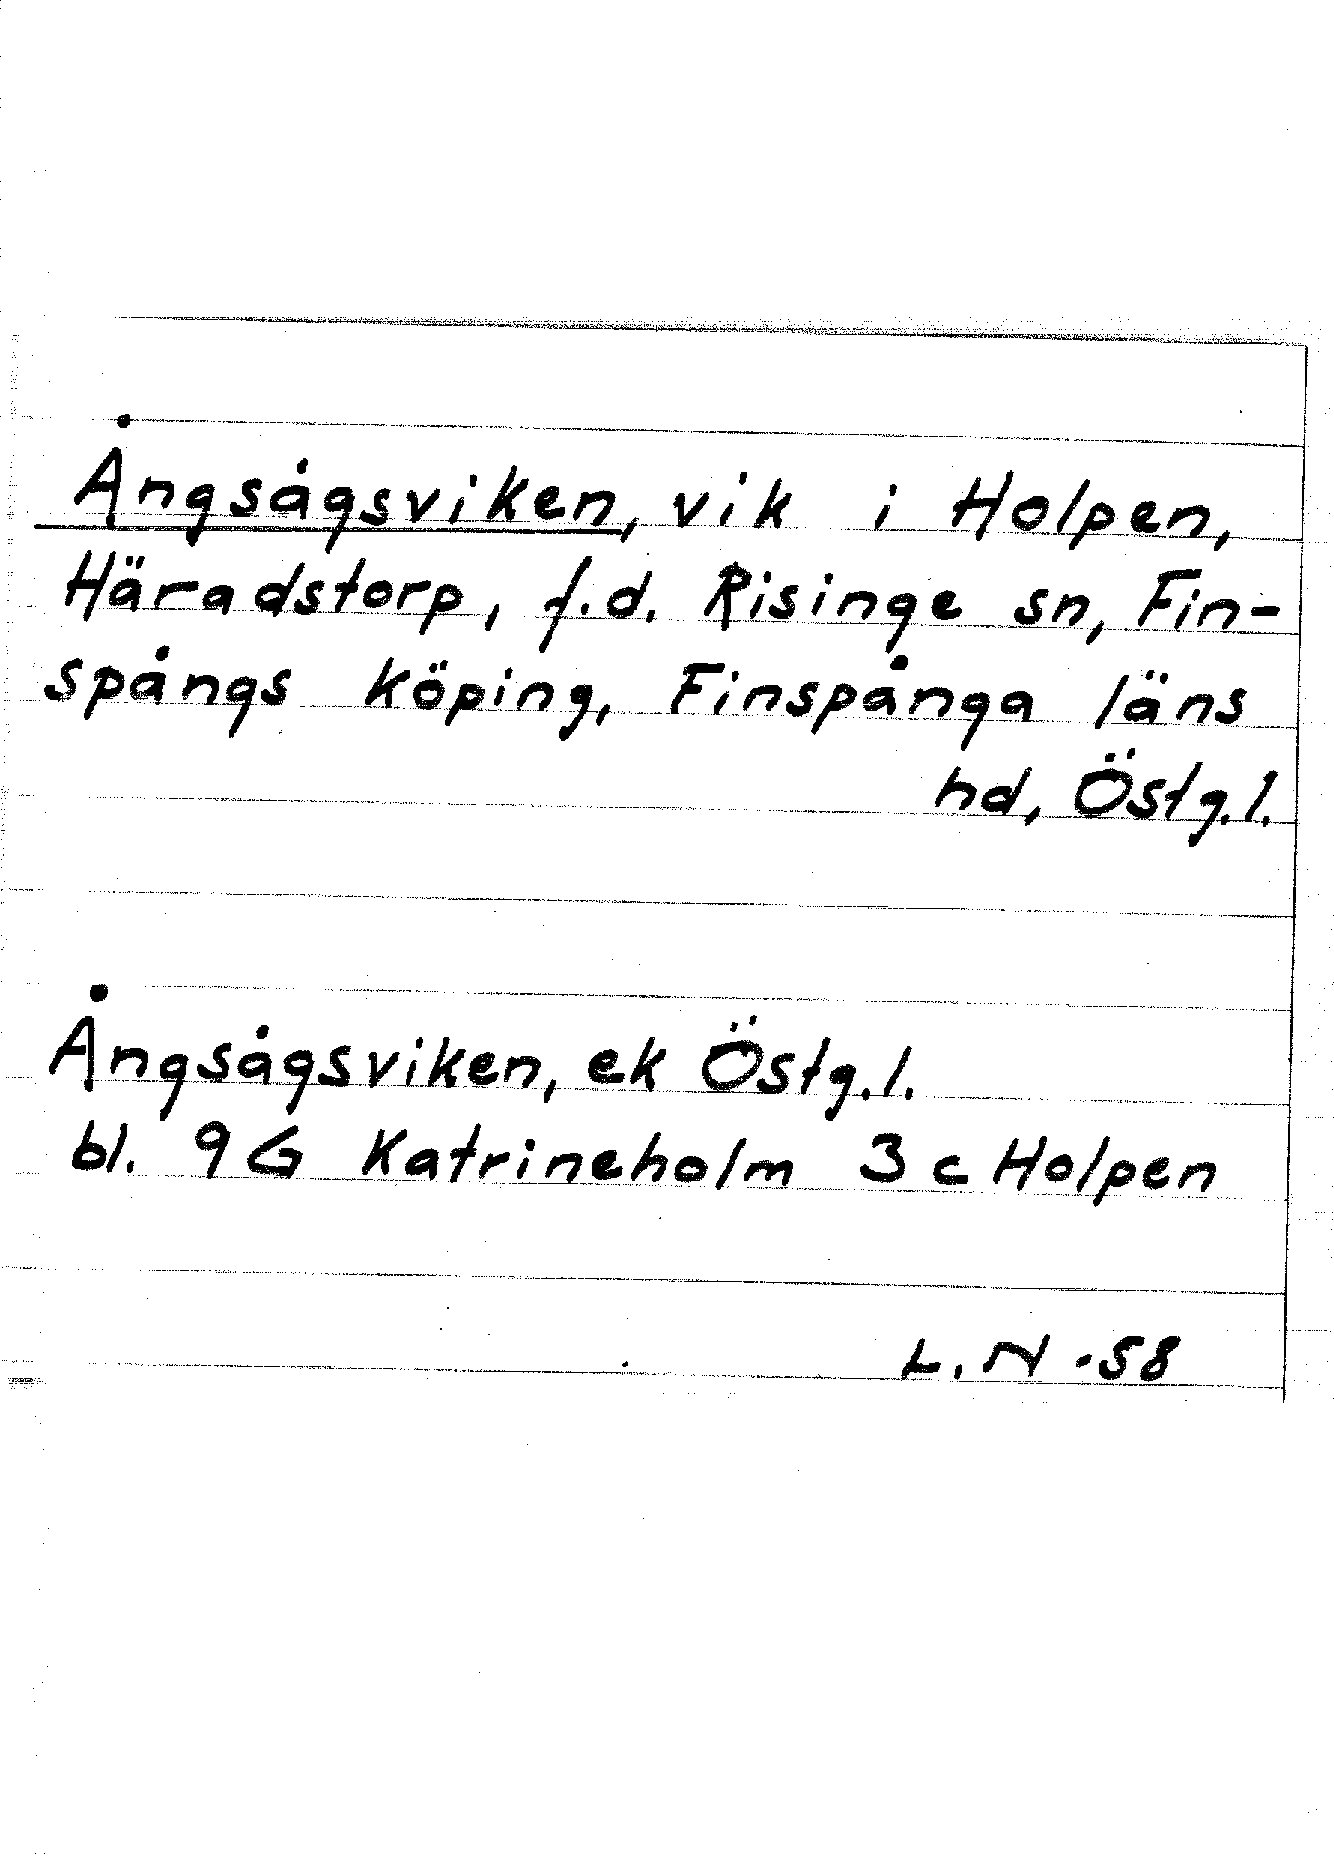 Ångsågsviken, vik i Holpen,
Häradstorp, f.d. Risinge sn, Fin-
spångs köping, Finspånga läns
hd, Östg.l.
Ångsågsviken, ek Östg.l.
bl. 9G Katrineholm 3c Holpen
L.N -58